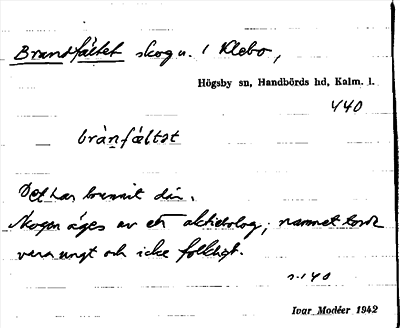 Brandfältet skog u. / Klebo,
Högsby sn, Handbörds hd, Kalm. l.
440
brànfáltət
Det har brunnit där.
Skogen äges av ett aktiebolag; namnet torde
vara ungt och icke folkligt.
s. 140
Ivar Modéer 1942